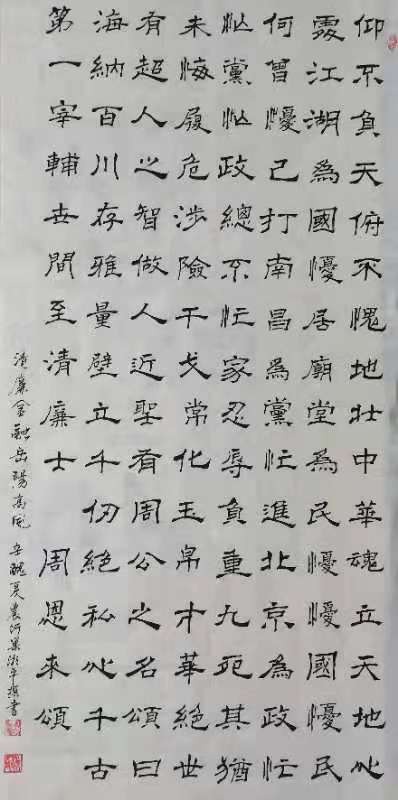 仰不負天俯不愧地壯中華魂立天地心
處江湖為國懮居廟堂為民懮懮國懮民
何曾懮己打南昌為黨忙進北京為政忙
忙黨忙政總不忙家忍辱負重九死其猶
未悔履危涉險干戈常化玉帛才華絕世
有超人之智做人近聖有周公之名頌曰
海納百川存雅量壁立千仞絕私心千古
第一宰輔世間至清廉士 周恩來頌
清廉金融岳陽高風 辛醜夏農河